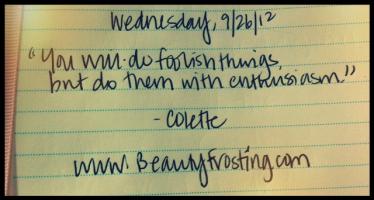 Wednesday, 9/26/12
"You will do foolish things,
but do them with enthusiasm."
- Colette
www.BeautyFrosting.com